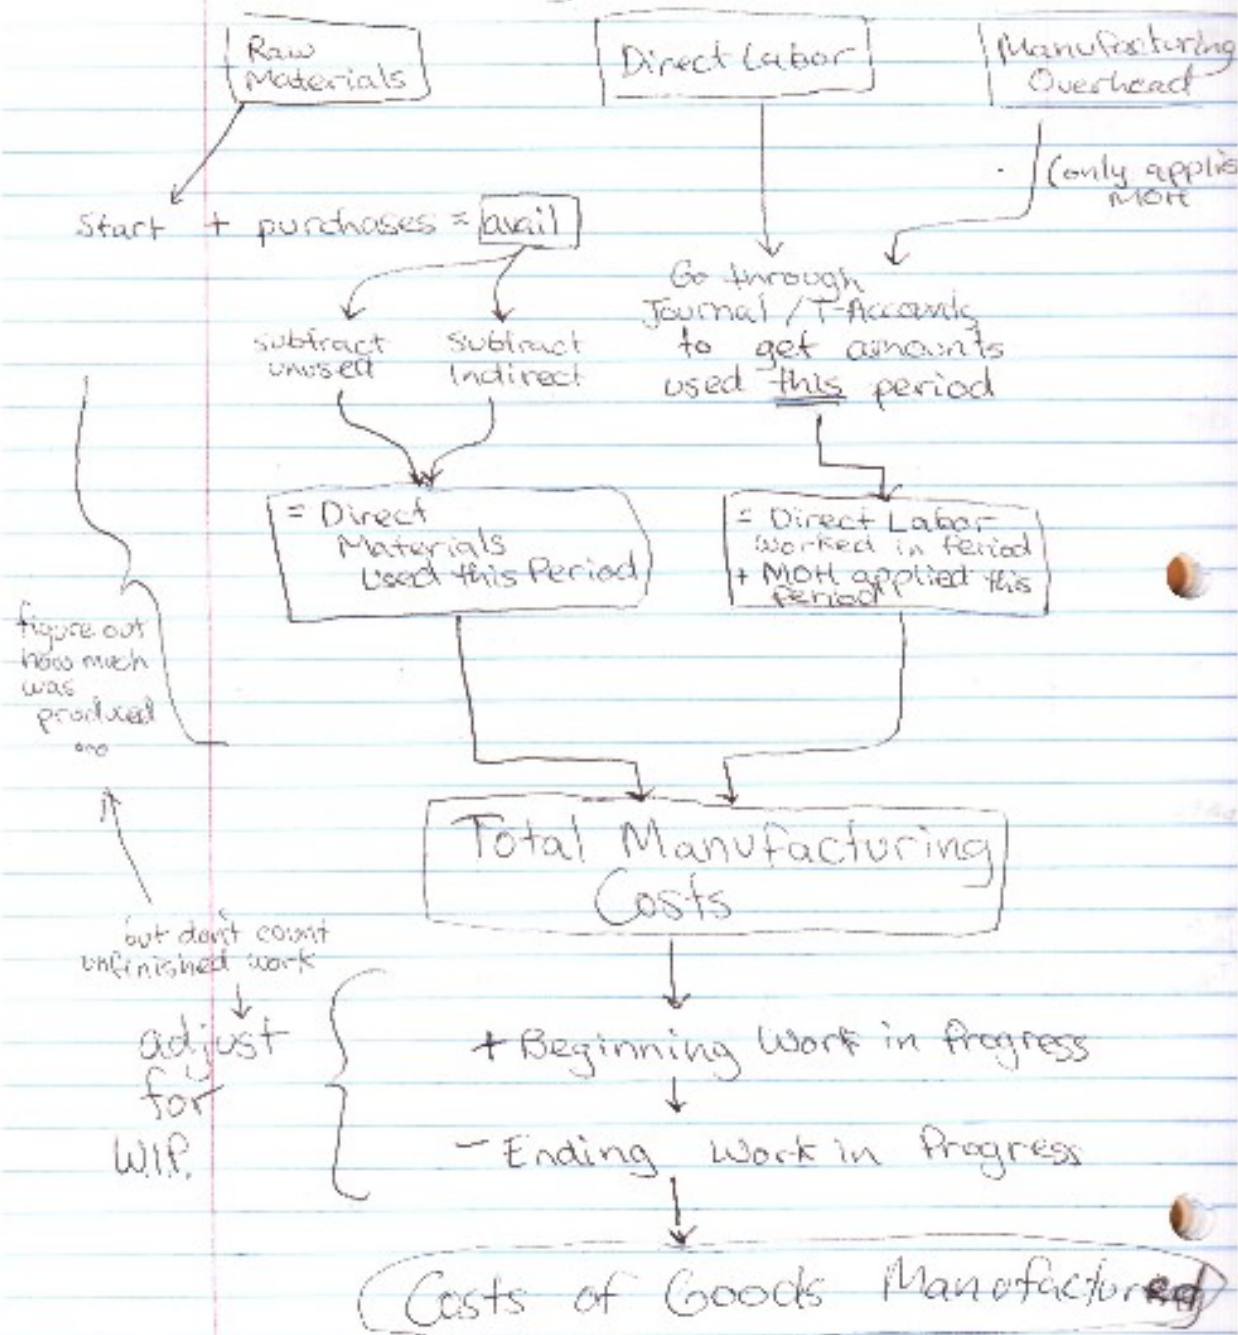 Raw
Materials
Direct Labor
Manufacturing
Overhead
(only applies
MOH
Start + purchases = avail
subtract
unused
Subtract
Indirect
Go through
Journal / T-Accounts
to get amounts
used this period
= Direct
Materials
Used this Period
= Direct Labor
Worked in Period
+ MOH applied this
Period
figure out
how much
was
produced
...
Total Manufacturing
Costs
but don't count
unfinished work
adjust
for
W.I.P.
+ Beginning Work in Progress
- Ending Work in Progress
Costs of Goods Manufactured